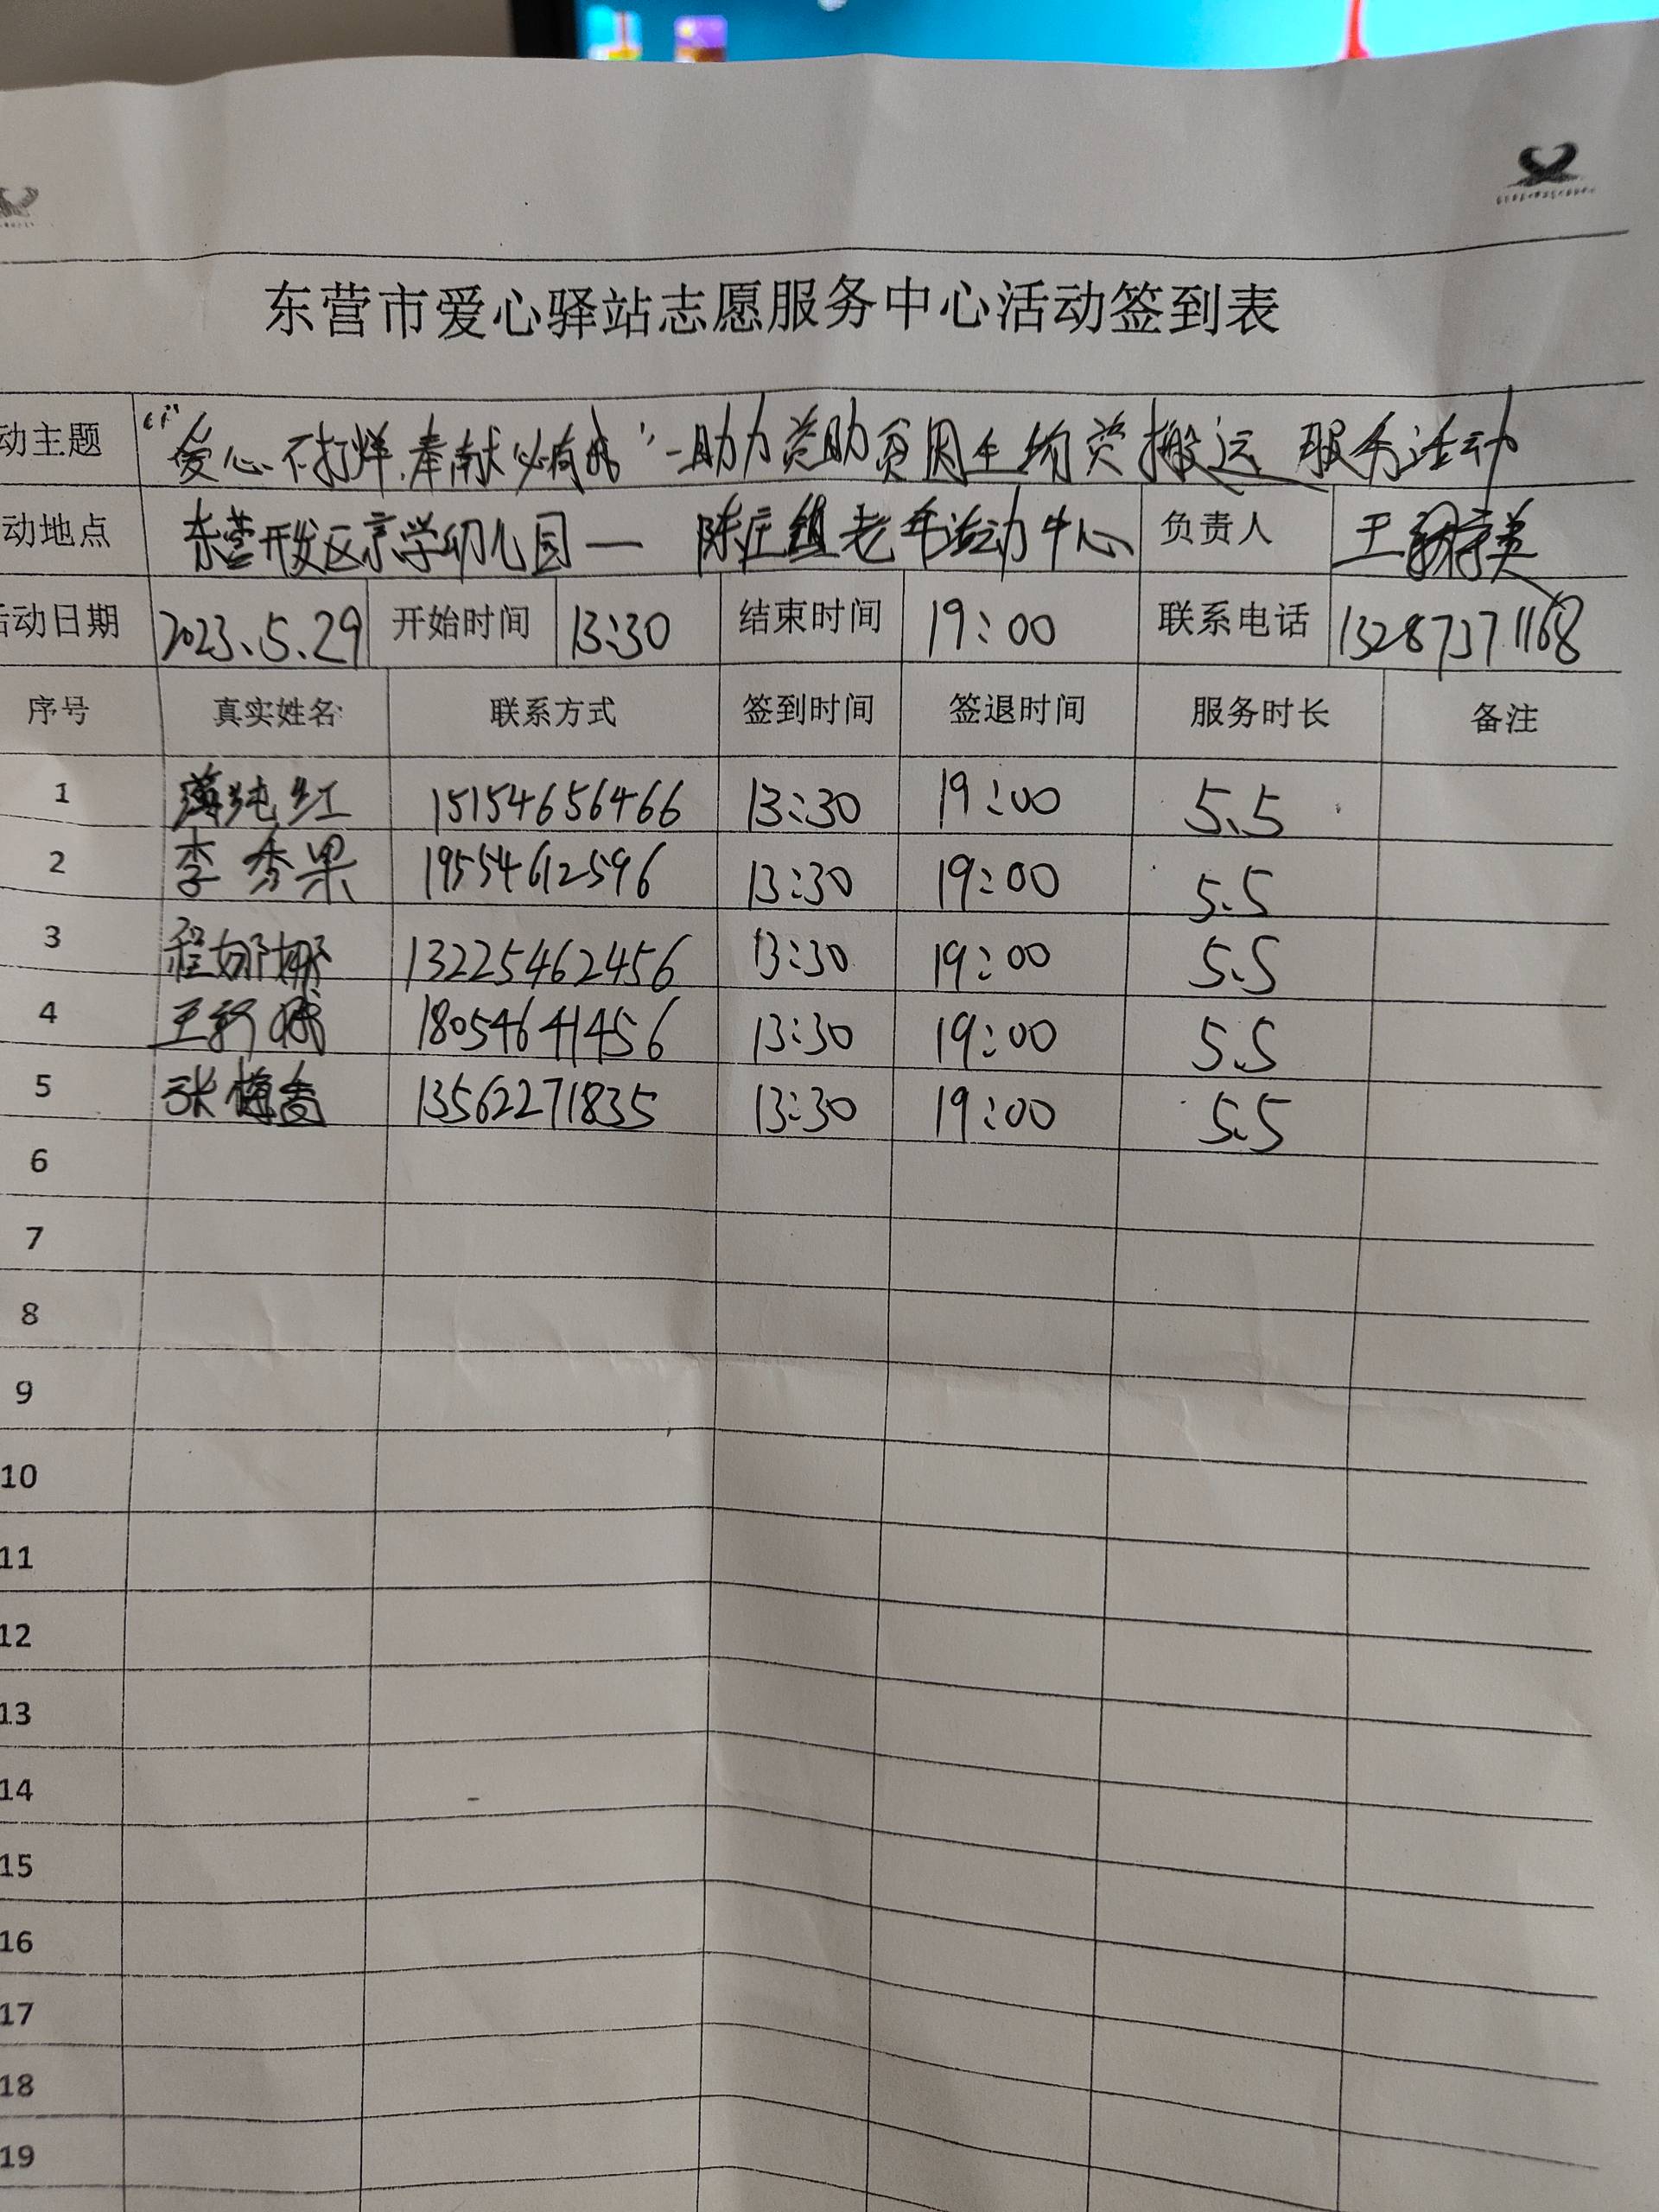 东营市爱心驿站志愿服务中心活动签到表
动主题 “爱心不打烊.奉献必有我”-助力资助贫困生物资搬运 服务活动
动地点 东营开发区京学幼儿园— 陈庄组老年活动中心 负责人 王
活动日期 2023.5.29 开始时间 13:30 结束时间 19:00 联系电话 13287371168
序号 真实姓名 联系方式 签到时间 签退时间 服务时长 备注
1 薄纯红 15154656466 13:30 19:00 5.5
2 李秀果 19554612596 13:30 19:00 5.5
3 程娜娜 13225462456 13:30 19:00 5.5
4 王 18054641456 13:30 19:00 5.5
5 张梅 13562271835 13:30 19:00 5.5
6
7
8
9
10
11
12
13
14
15
16
17
18
19